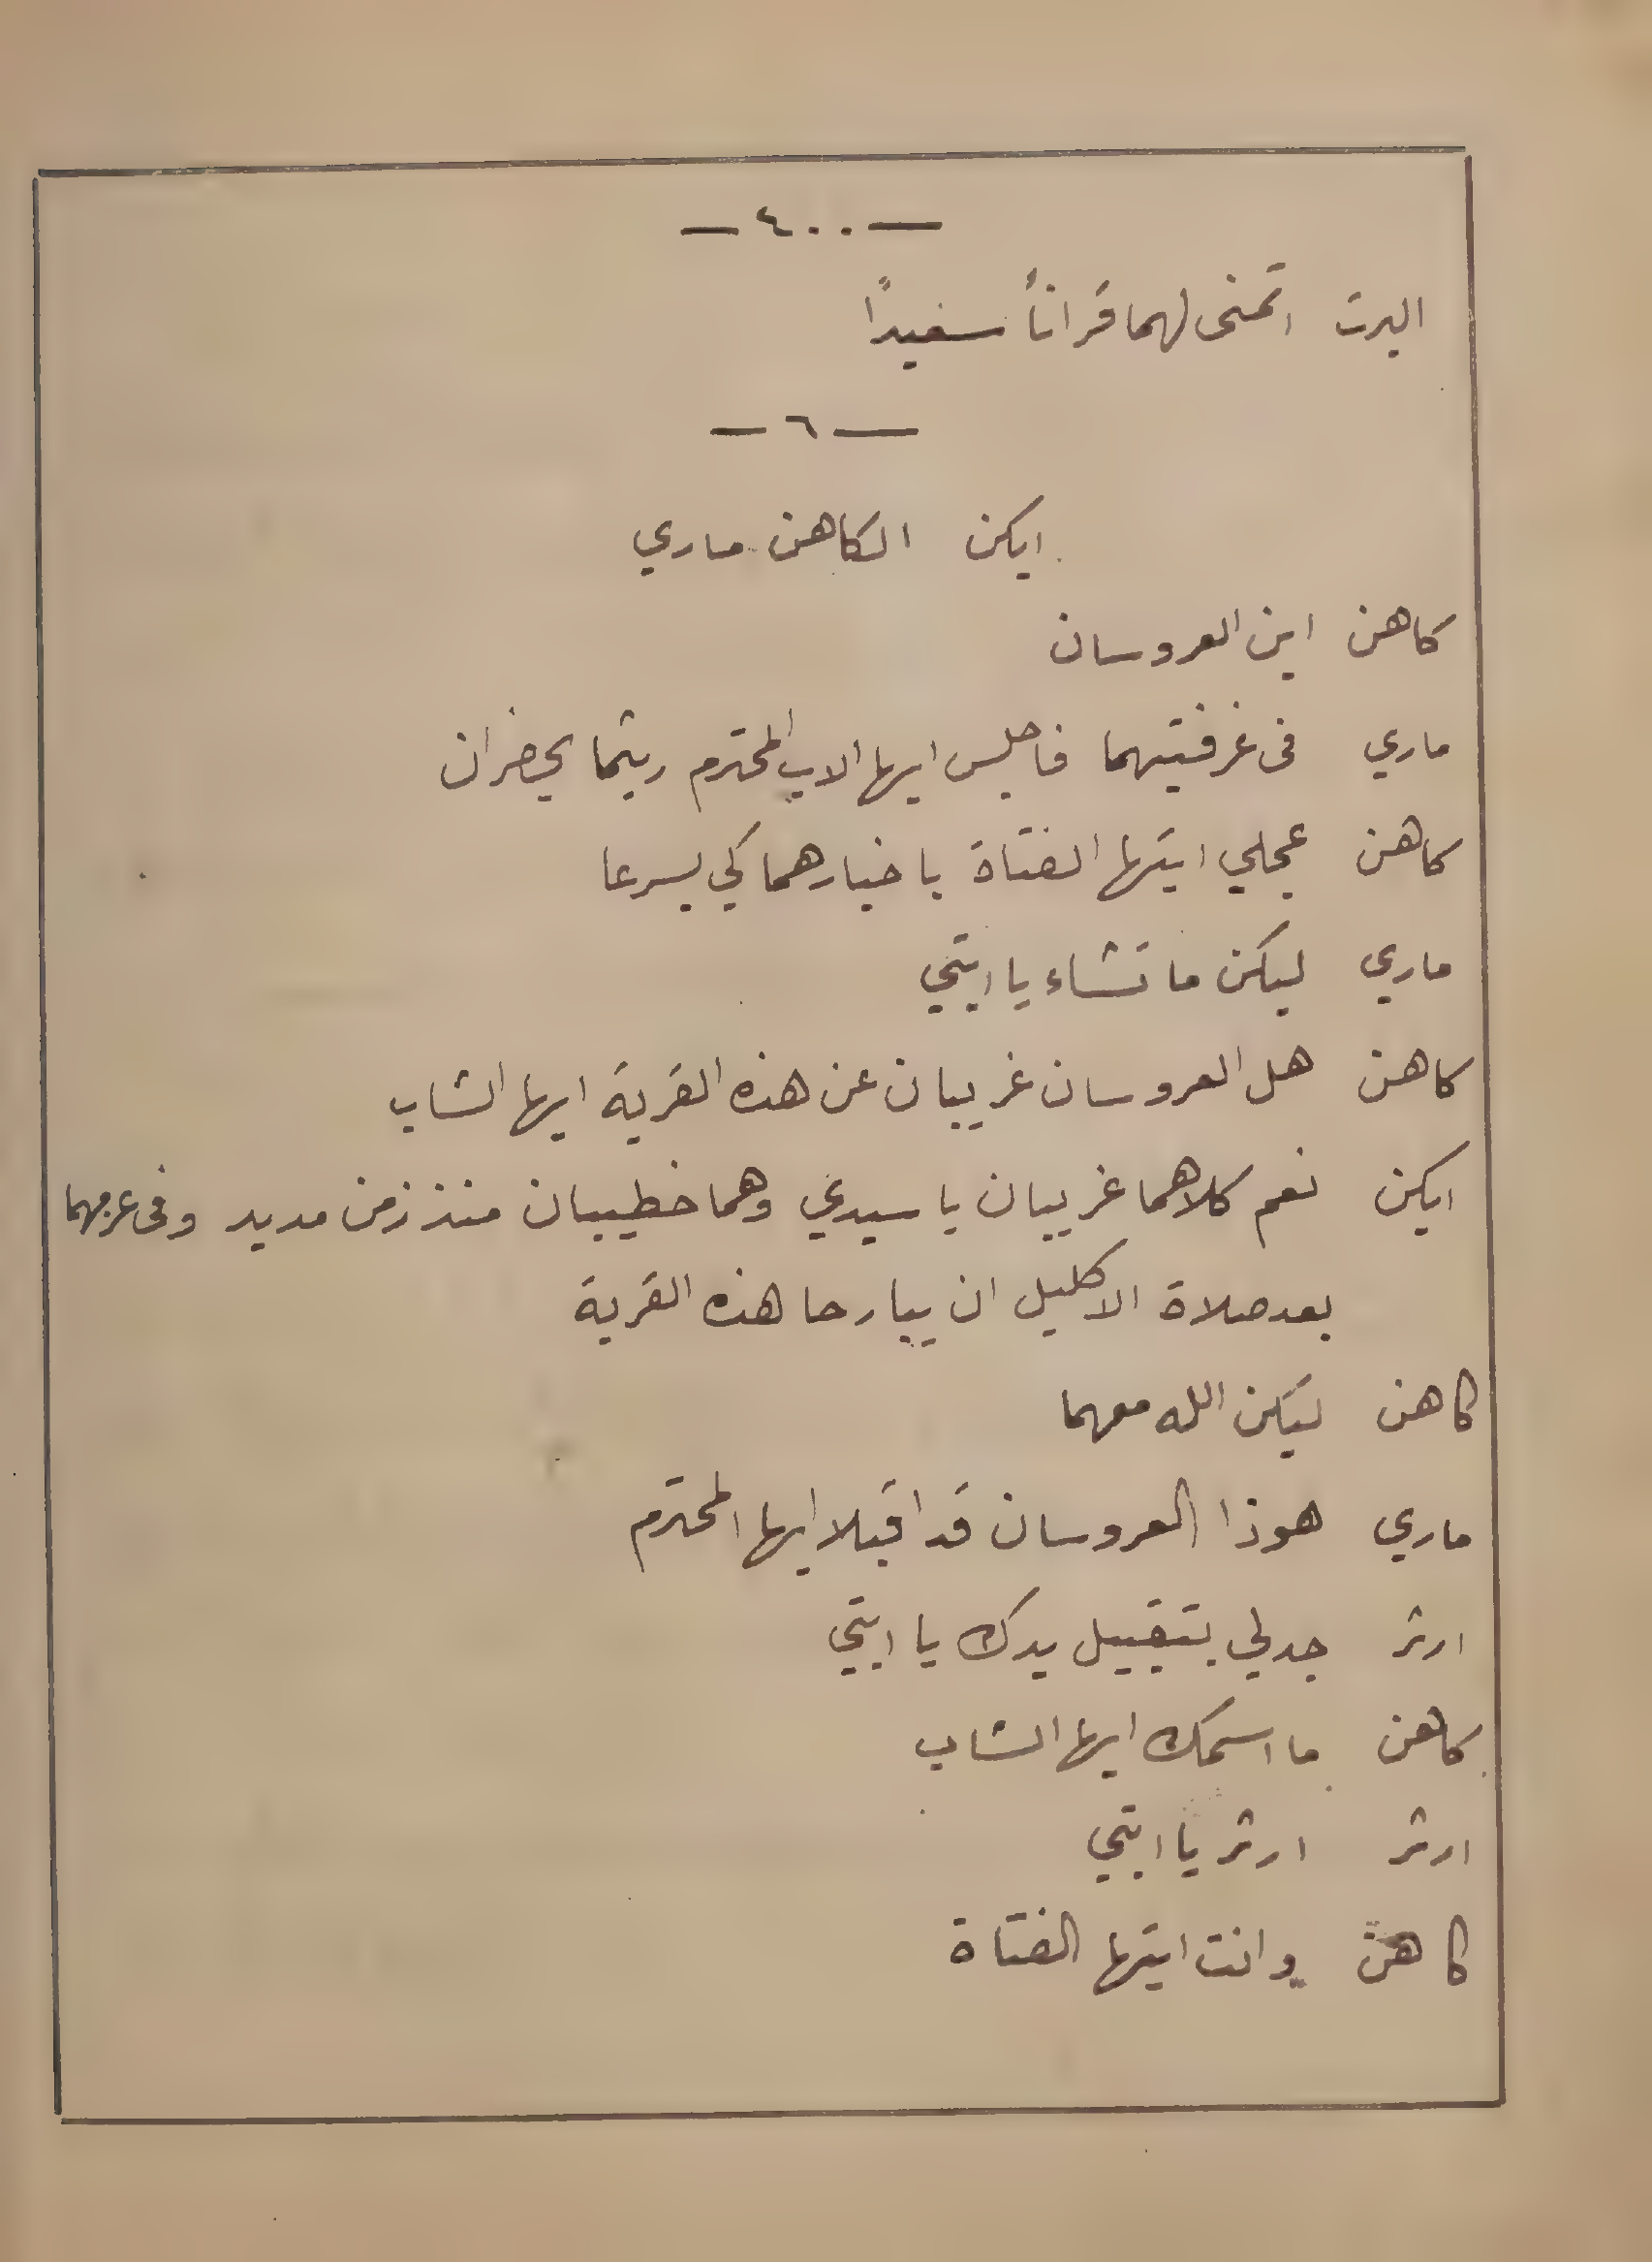 — ٤٠٠ —
البرت اتمنى لهما قراناً سعيدًا
— ٦ —
ايكن الكاهن ماري
كاهن اين العروسان
ماري فى غرفتيهما فاجلس ايها الاب المحترم ريثما يحضران
كاهن عجلي ايتها الفتاة باخبارهما كي يسرعا
ماري ليكن ما تشاء يا ابتي
كاهن هل العروسان غريبان عن هذه القرية ايها الشاب
ايكن نعم كلاهما غريبان يا سيدي وهما خطيبان منذ زمن مديد وفى عزمهما
بعد صلاة الاكليل ان يبارحا هذه القرية
كاهن ليكن الله معهما
ماري هوذا العروسان قد اقبلا ايها المحترم
ارثر جد لي بتقبيل يدك يا ابتي
كاهن ما اسمك ايها الشاب
ارثر ارثر يا ابتي
كاهن وانت ايتها الفتاة